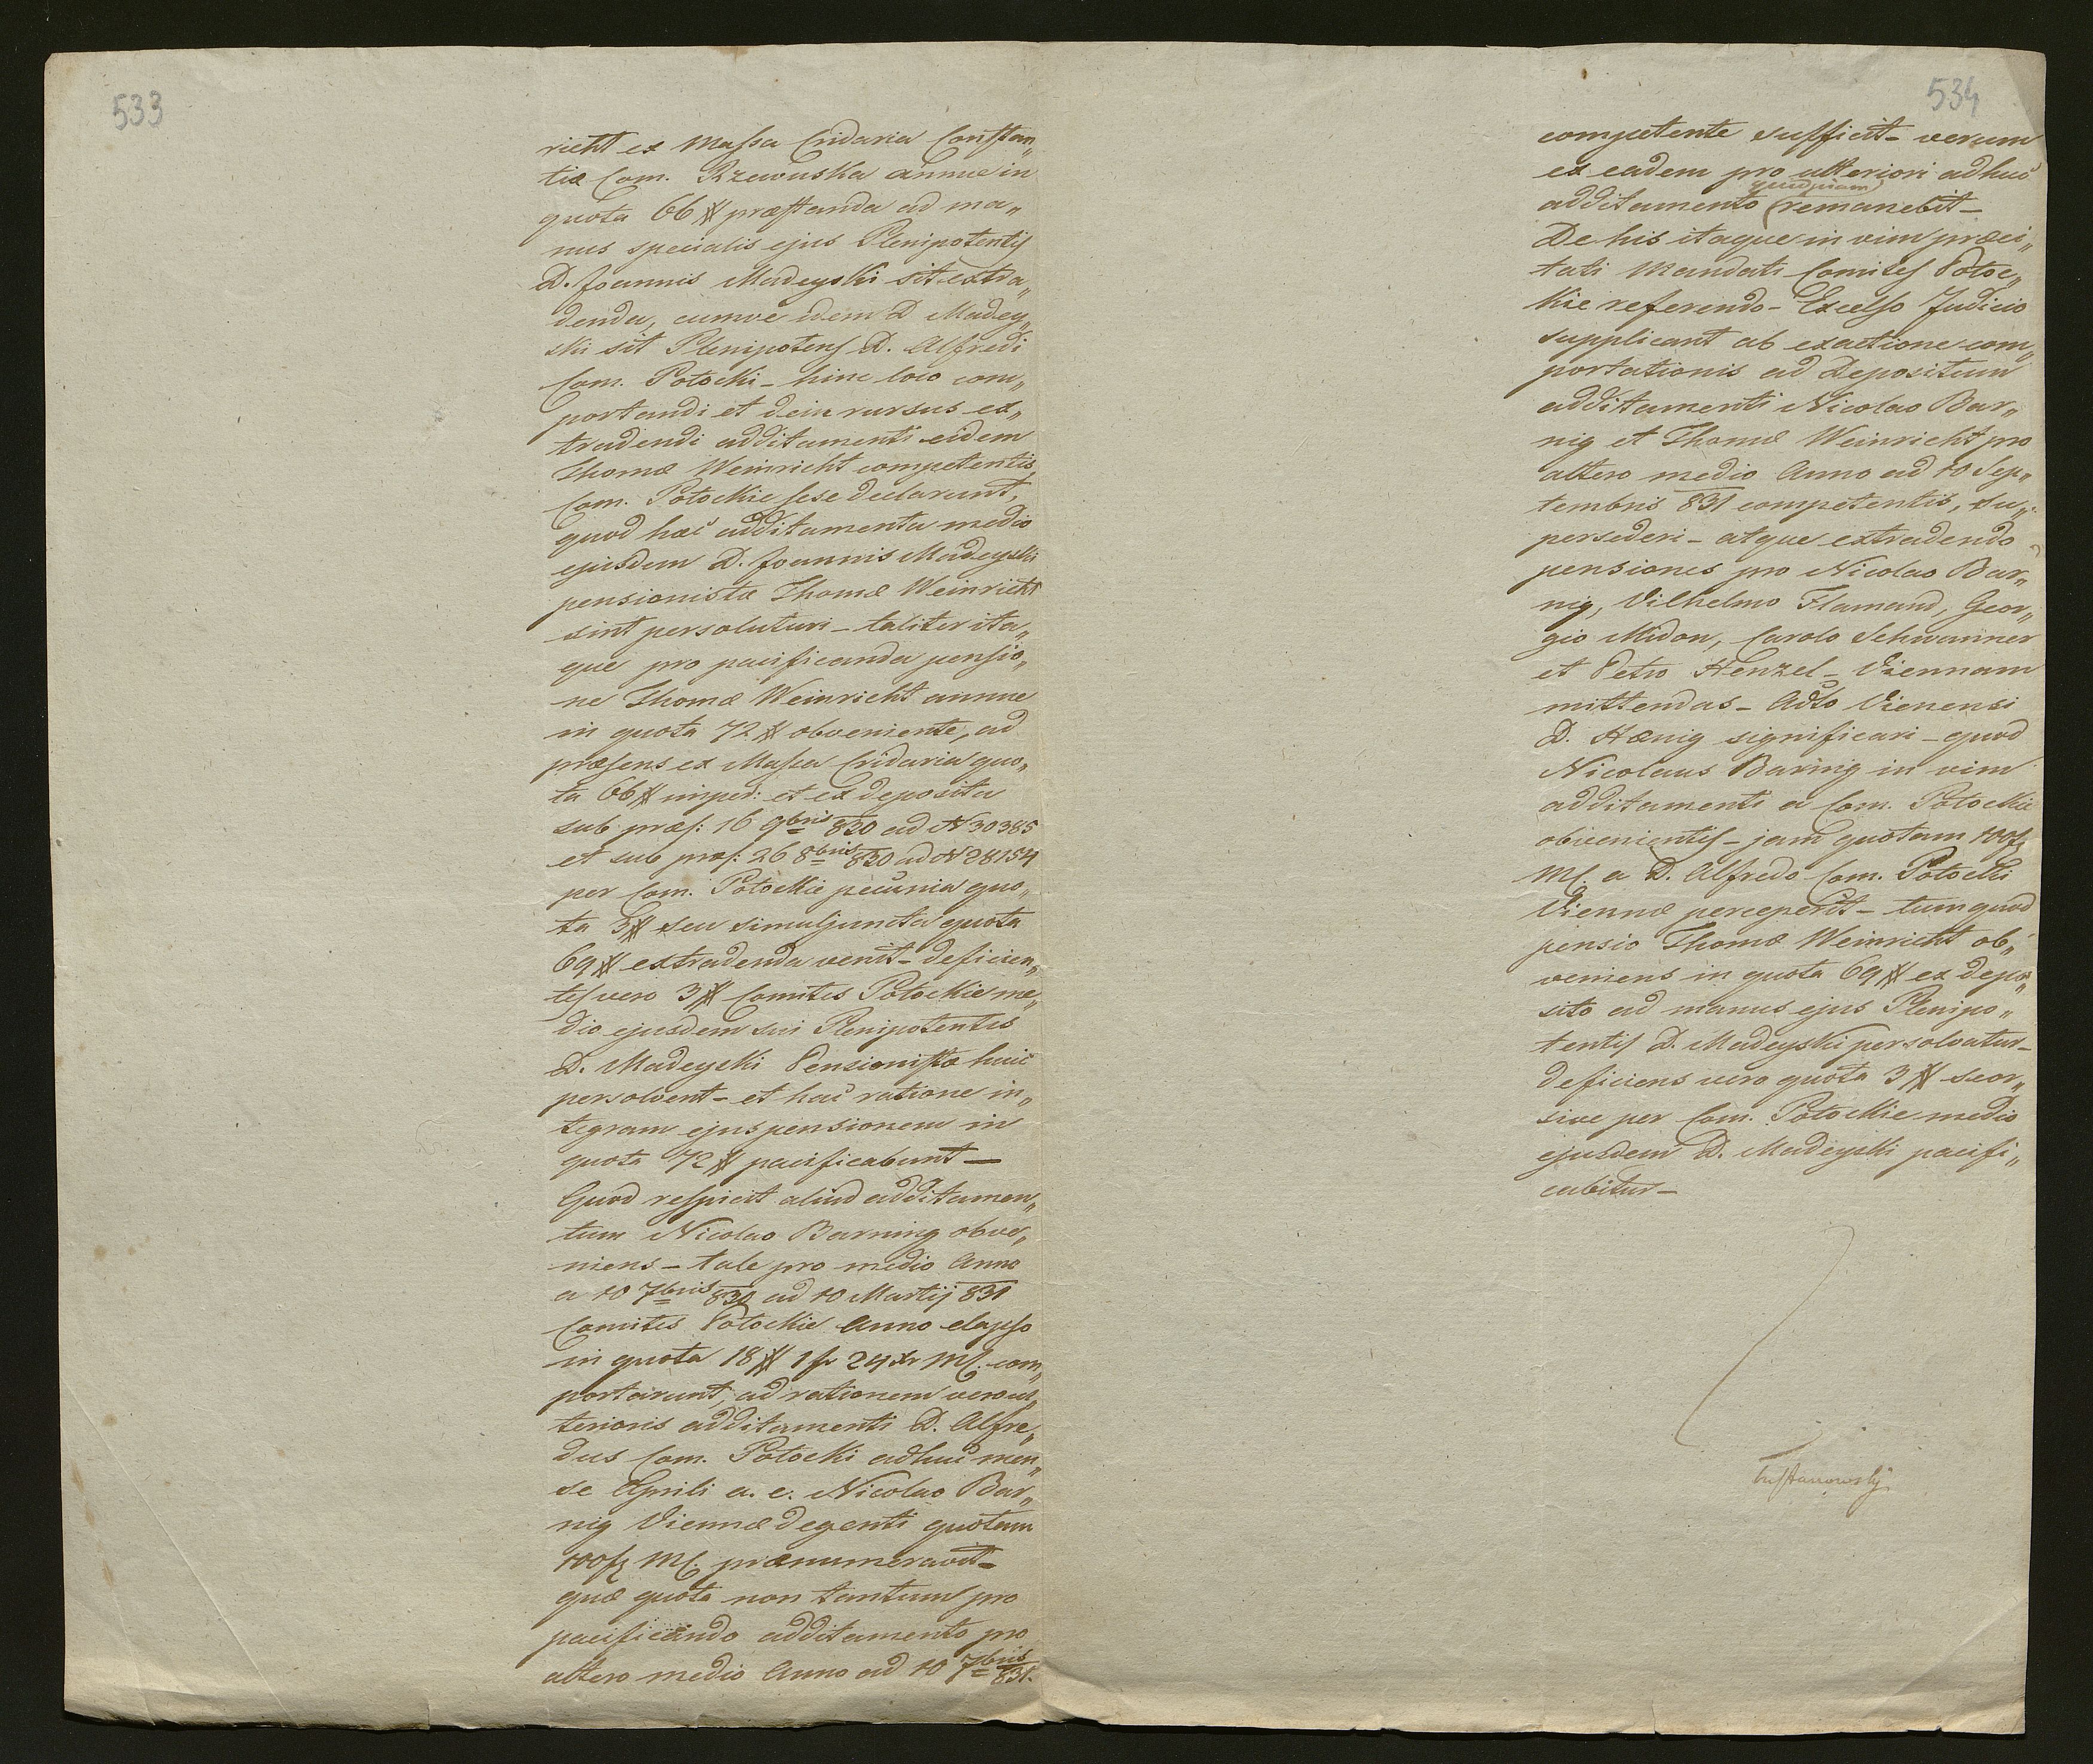 533
richt ex Massa Cridaria Constan„
tiæ Com. Rzewuska annue in
quota 66 # præstanda ad ma„
nus specialis ejus Plenipotentis
D. Joannis Madeyski sit extra„
denda, cumve idem D Madey„
ski sit Plenipotens D. Alfredi
Com. Potocki – hinc loco com„
portandi et dein rursus ex„
tradendi additamenti eidem
Thomæ Weinricht competentis,
Com. Potockie sese declarant,
quod hæc additamenta medio
ejusdem D. Joannis Madeyski
pensionistæ Thomæ Weinricht
sint persoluturi – taliter ita„
que pro pacificanda pensio„
ne Thomæ Weinricht annue
in quota 72 # obveniente, ad
præsens ex Massa Cridaria quo„
ta 66 # imper: et ex deposita
sub præs: 16 9bris 830 ad N 30385
et sub præs: 26 8bris 830 ad N 28154
per Com. Potockie pecunia quo„
ta 3 # seu simul juncta quota
69 # extradenda venit – deficien„
tes vero 3 # Comites Potockie me„
dio ejusdem sui Plenipotentis
D. Madeyski Pensionistæ huic
persolvent – et hac ratione in„
tegram ejus pensionem in
quota 72 # pacificabunt –
Quod respicit aliud additamen„
tum Nicolao Barning obve„
niens – tale pro medio Anno
a 10 7bris 830 ad 10 Martij 831
Comites Potockie Anno elapso
in quota 18 # 1 fr 24 xr MC. com„
portarunt, ad rationem vero ul„
terioris additamenti D. Alfre„
dus Com. Potocki adhuc men„
se Aprili a. c. Nicolao Bar„
nig Viennæ degenti quotam
100 fr MC. prænumeravit –
quæ quota non tantum pro
pacificando additamento pro
altero medio Anno ad 10 7bris 831.
534
competente sufficit – verum
ex eadem pro ulteriori adhuc
quidpiam
additamento remanebit –
De his itaque in vim præci„
tati Mandati Comites Potoc„
kie referendo – Excelso Judicio
supplicant ab exactione com„
portationis ad Depositum
additamenti Nicolao Bar„
nig et Thomæ Weinricht pro
altero medio Anno ad 10 Sep„
tembris 831 competentis, su„
persederi – atque extradendo
pensiones pro Nicolao Bar„
nig, Vilhelmo Flamand, Geor„
gio Midon, Carolo Schwanner
et Petro Henzel – Viennam
mittendas – Adto Vienensi
D. Hænig significari – quod
Nicolaus Barnig in vim
additamenti a Com. Potockie
obvenientis – jam quotam 100 fr
MC. a D. Alfredo Com. Potocki
Viennæ perceperit – tum quod
pensio Thomæ Weinricht ob„
veniens in quota 69 # ex depo„
sito ad manus ejus Plenipo„
tentis D. Madeyski persolvatur –
deficiens vero quota 3 # seor„
sive per Com. Potockie medio
ejusdem D. Madeyski pacifi„
cabitur –